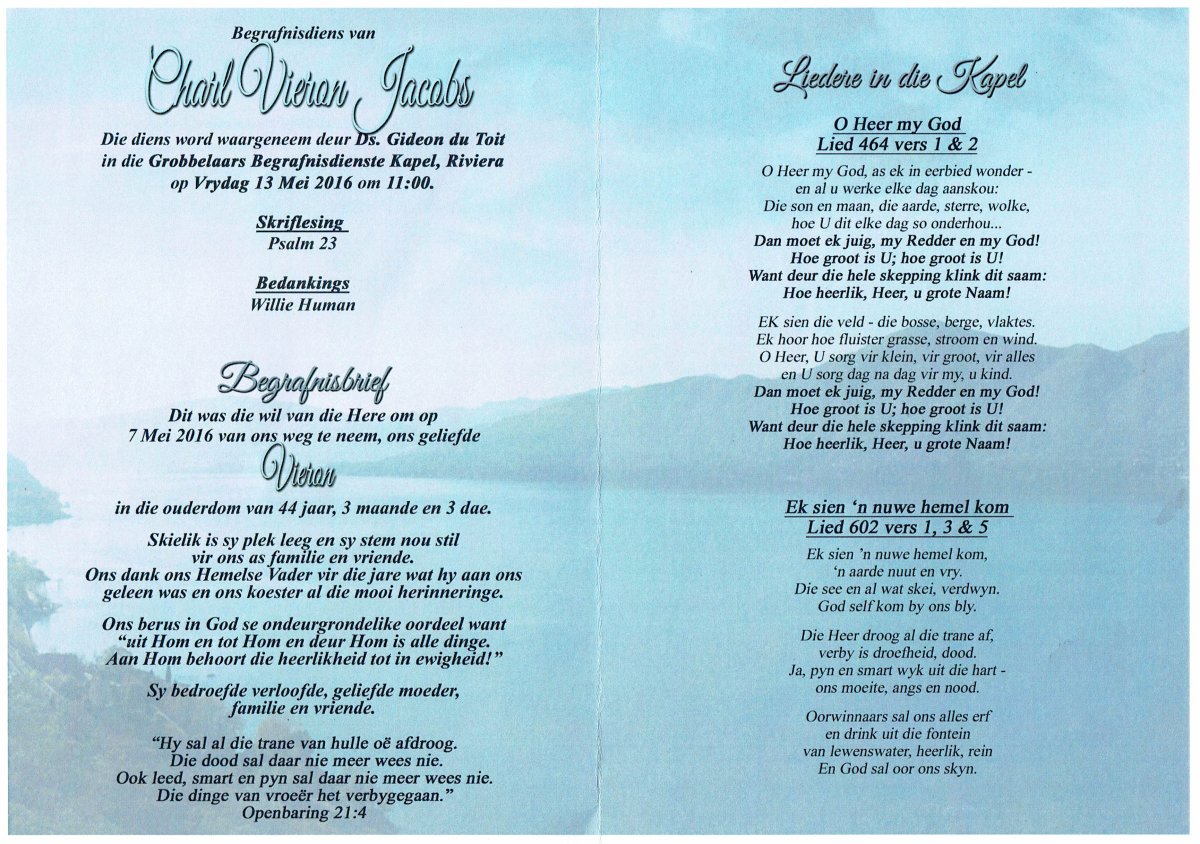 Begrafnisdiens van
Charl Vieron Jacobs
Die diens word waargeneem deur Ds. Gideon du Toit
in die Grobbelaars Begrafnisdienste Kapel, Riviera
op Vrydag 13 Mei 2016 om 11:00.
Skriflesing
Psalm 23
Bedankings
Willie Human
Begrafnisbrief
Dit was die wil van die Here om op
7 Mei 2016 van ons weg te neem, ons geliefde
Vieron
in die ouderdom van 44 jaar, 3 maande en 3 dae.
Skielik is sy plek leeg en sy stem nou stil
vir ons as familie en vriende.
Ons dank ons Hemelse Vader vir die jare wat hy aan ons
geleen was en ons koester al die mooi herinneringe.
Ons berus in God se ondeurgrondelike oordeel want
“uit Hom en tot Hom en deur Hom is alle dinge.
Aan Hom behoort die heerlikheid tot in ewigheid!”
Sy bedroefde verloofde, geliefde moeder,
familie en vriende.
“Hy sal al die trane van hulle oë afdroog.
Die dood sal daar nie meer wees nie.
Ook leed, smart en pyn sal daar nie meer wees nie.
Die dinge van vroeër het verbygegaan.”
Openbaring 21:4
Liedere in die Kapel
O Heer my God
Lied 464 vers 1 & 2
O Heer my God, as ek in eerbied wonder -
en al u werke elke dag aanskou:
Die son en maan, die aarde, sterre, wolke,
hoe U dit elke dag so onderhou...
Dan moet ek juig, my Redder en my God!
Hoe groot is U; hoe groot is U!
Want deur die hele skepping klink dit saam:
Hoe heerlik, Heer, u grote Naam!
EK sien die veld - die bosse, berge, vlaktes.
Ek hoor hoe fluister grasse, stroom en wind.
O Heer, U sorg vir klein, vir groot, vir alles
en U sorg dag na dag vir my, u kind.
Dan moet ek juig, my Redder en my God!
Hoe groot is U; hoe groot is U!
Want deur die hele skepping klink dit saam:
Hoe heerlik, Heer, u grote Naam!
Ek sien ‘n nuwe hemel kom
Lied 602 vers 1, 3 & 5
Ek sien ’n nuwe hemel kom,
‘n aarde nuut en vry.
Die see en al wat skei, verdwyn.
God self kom by ons bly.
Die Heer droog al die trane af,
verby is droefheid, dood.
Ja, pyn en smart wyk uit die hart -
ons moeite, angs en nood.
Oorwinnaars sal ons alles erf
en drink uit die fontein
van lewenswater, heerlik, rein
En God sal oor ons skyn.